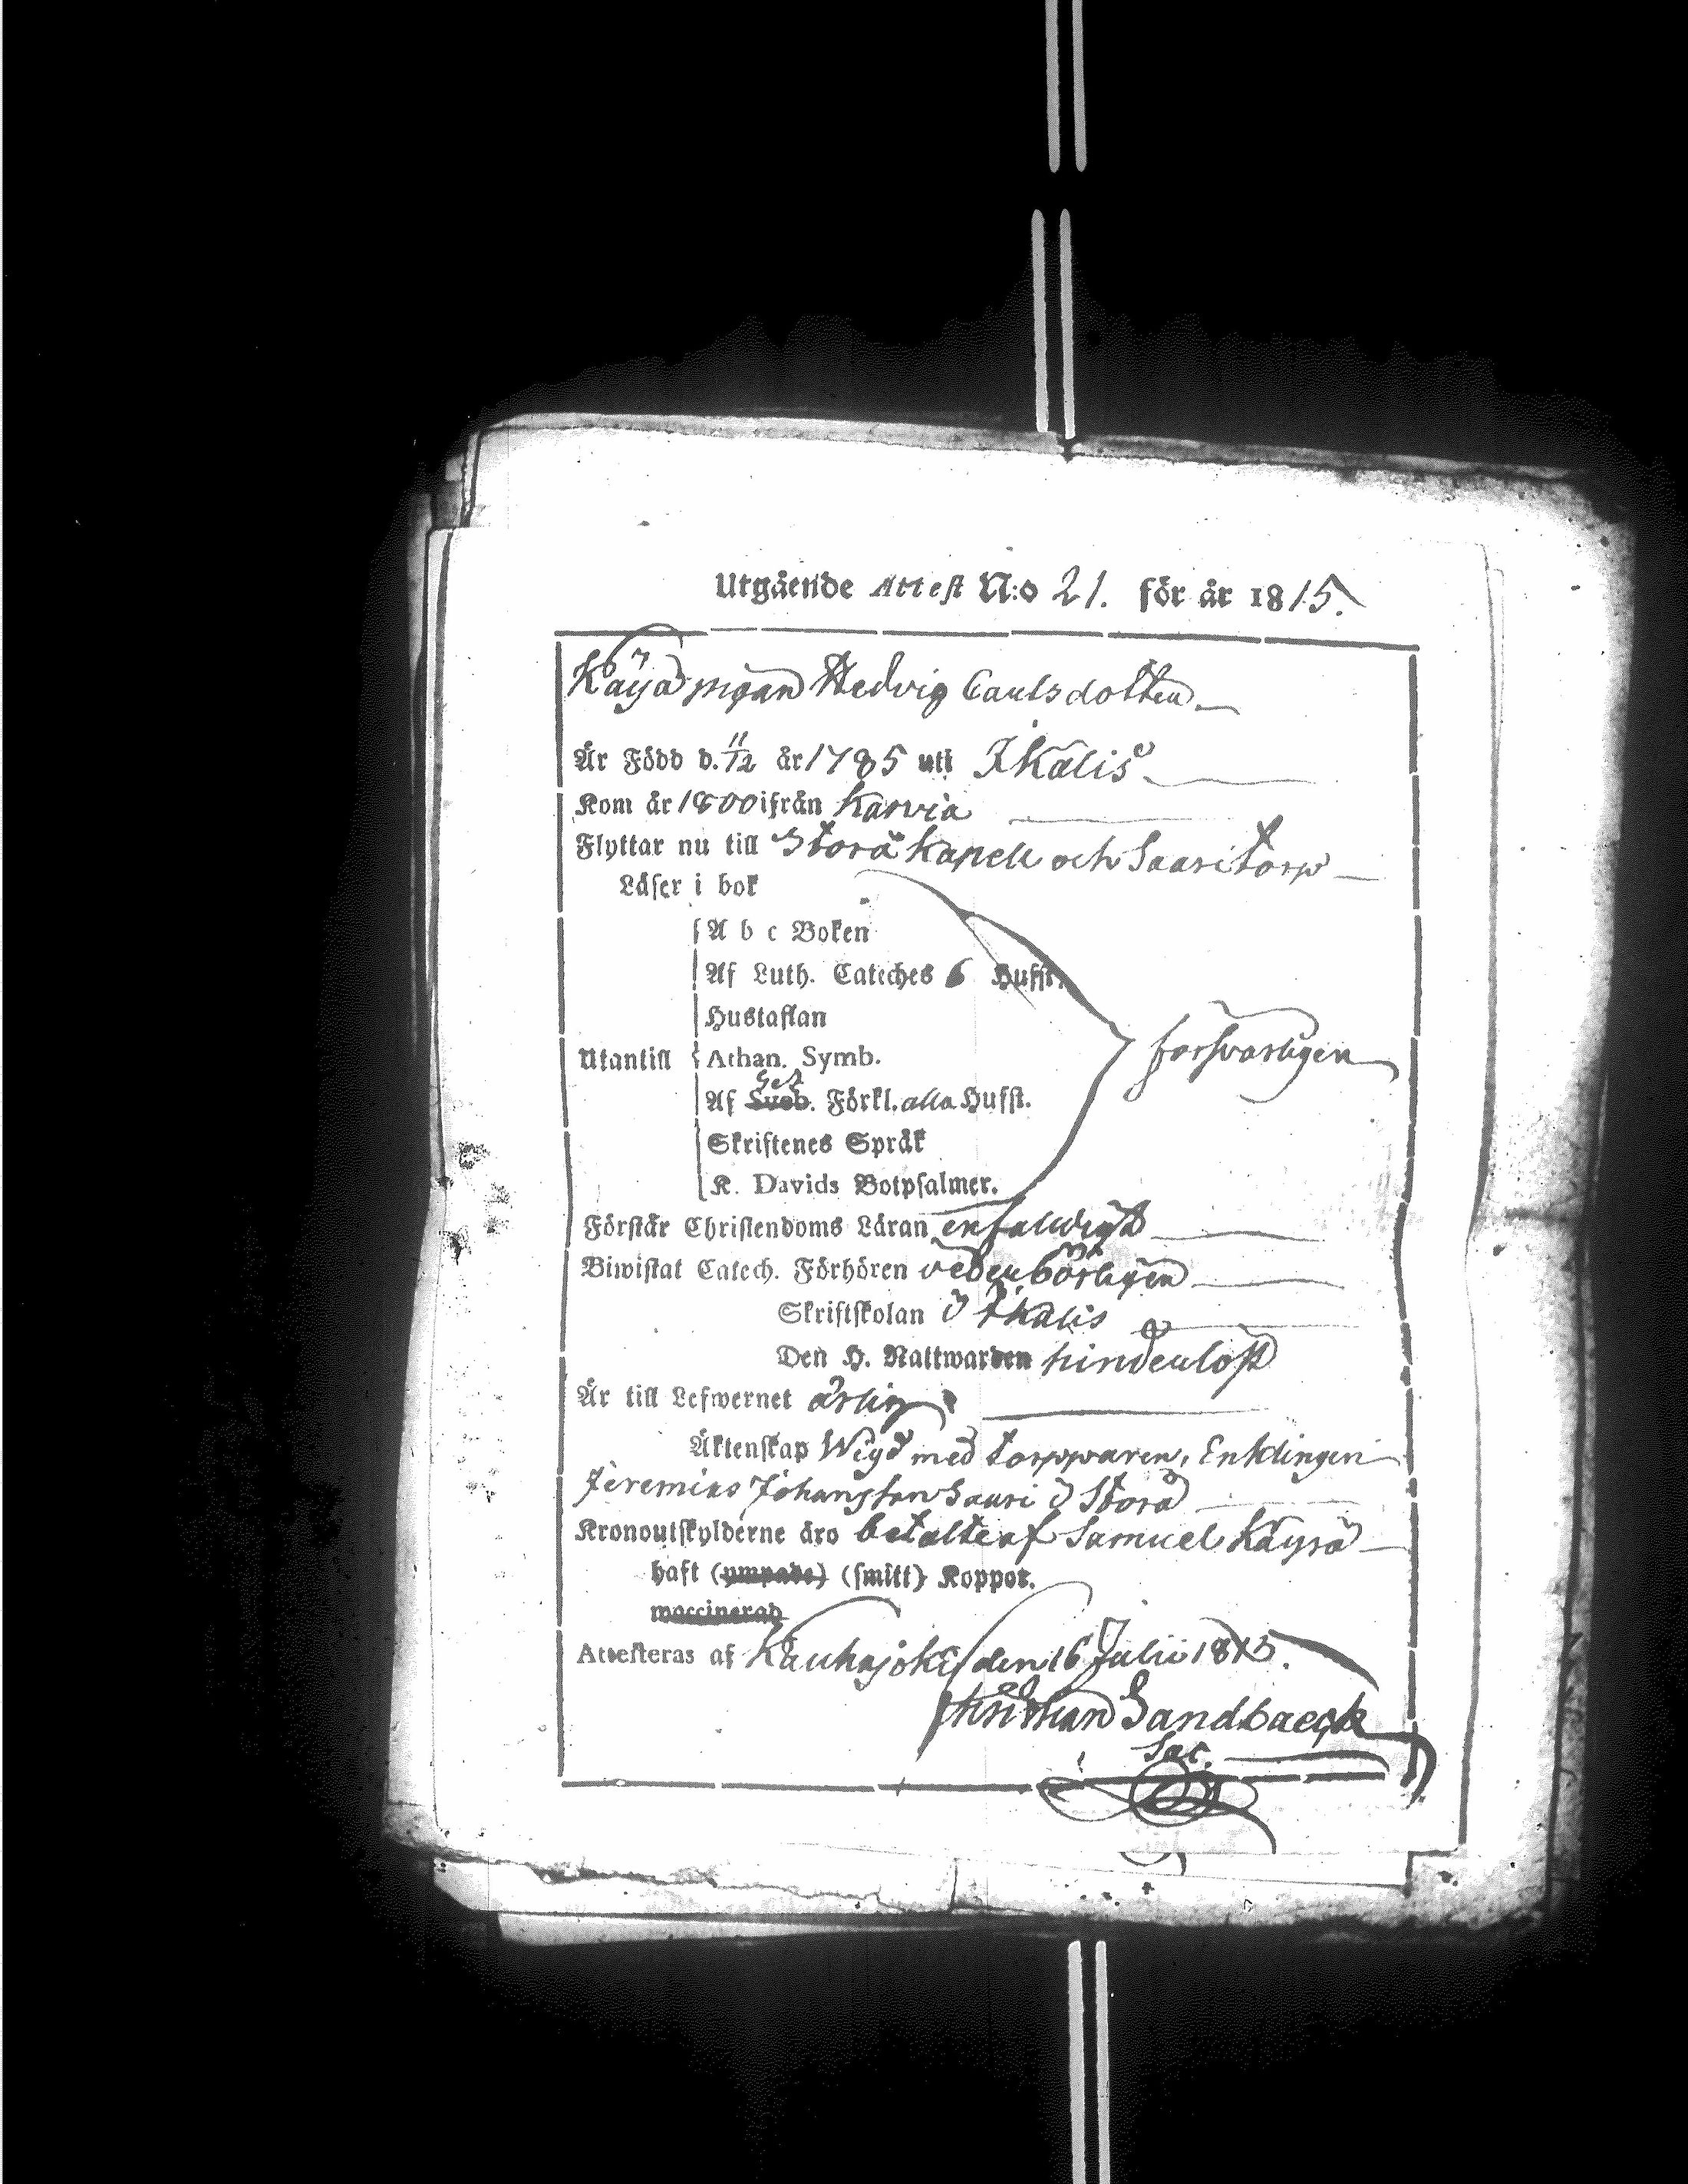 Utgående Attest N:o 21. för år 1815.
Käyrä pigan Hedvig Carlsdotter
Är Född d. 11/12 år 1785 uti Ikalis
Kom år 1800 ifrån Karvia
Flyttar nu till Storå Kapell och Saari torp
Läser i bok
A b c Boken
Af Luth. Cateches 6 Hufst.
Hustaflan
Utantill Athan. Symb. försvarligen
Af Sveb. Förkl. alla Hufst.
Skriftenes Språk
K. Davids Botpsalmer.
Förstår Christendoms Läran enfaldigt
Biwistat Catech. Förhören vederbörligen
Skriftskolan i Ikalis
Den H. Nattwarden hinderlöst
Är till Lefwernet ärlig
Äktenskap Wigd med torpparen, Enklingen
Jeremias Johansson Saari i Storå
Kronoutskylderne äro betalte af Samuel Käyrä
haft (ympade) (smitt) Koppor.
waccinerad
Attesteras af Kauhajoki den 16 Julii 1815.
Christian Sandbaeck
Sac.